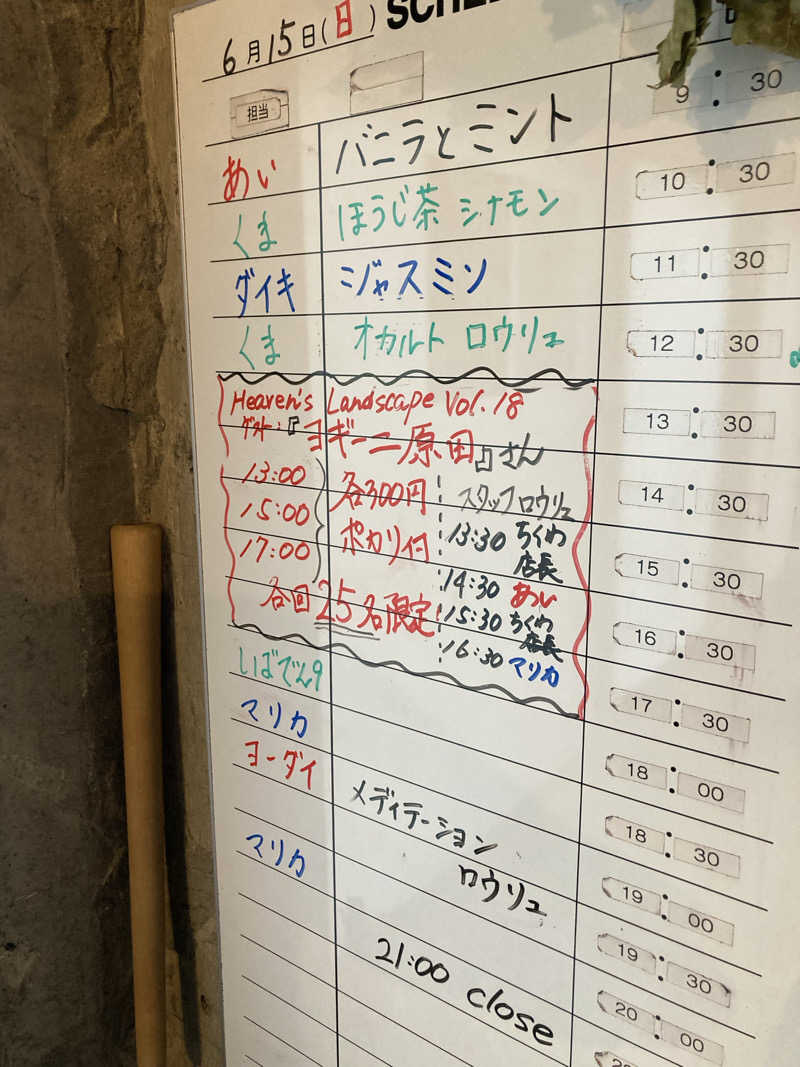 6月15日(日) SCHE
担当
9:30
あい バニラとミント 10:30
くま ほうじ茶 シナモン 11:30
ダイキ ジャスミン 12:30
くま オカルト ロウリュ 13:30
Heaven's Landscape Vol.18
ゲスト:『ヨギーニ原田』さん
13:00
15:00
17:00
各300円
ポカリ付
各回25名限定
スタッフロウリュ
13:30 ちくわ店長
14:30 あい
15:30 ちくわ店長
16:30 マリカ
14:30
15:30
16:30
17:30
18:00
18:30
19:00
19:30
20:00
いばでん9
マリカ
ヨーダイ
メディテーション
ロウリュ
マリカ
21:00 close